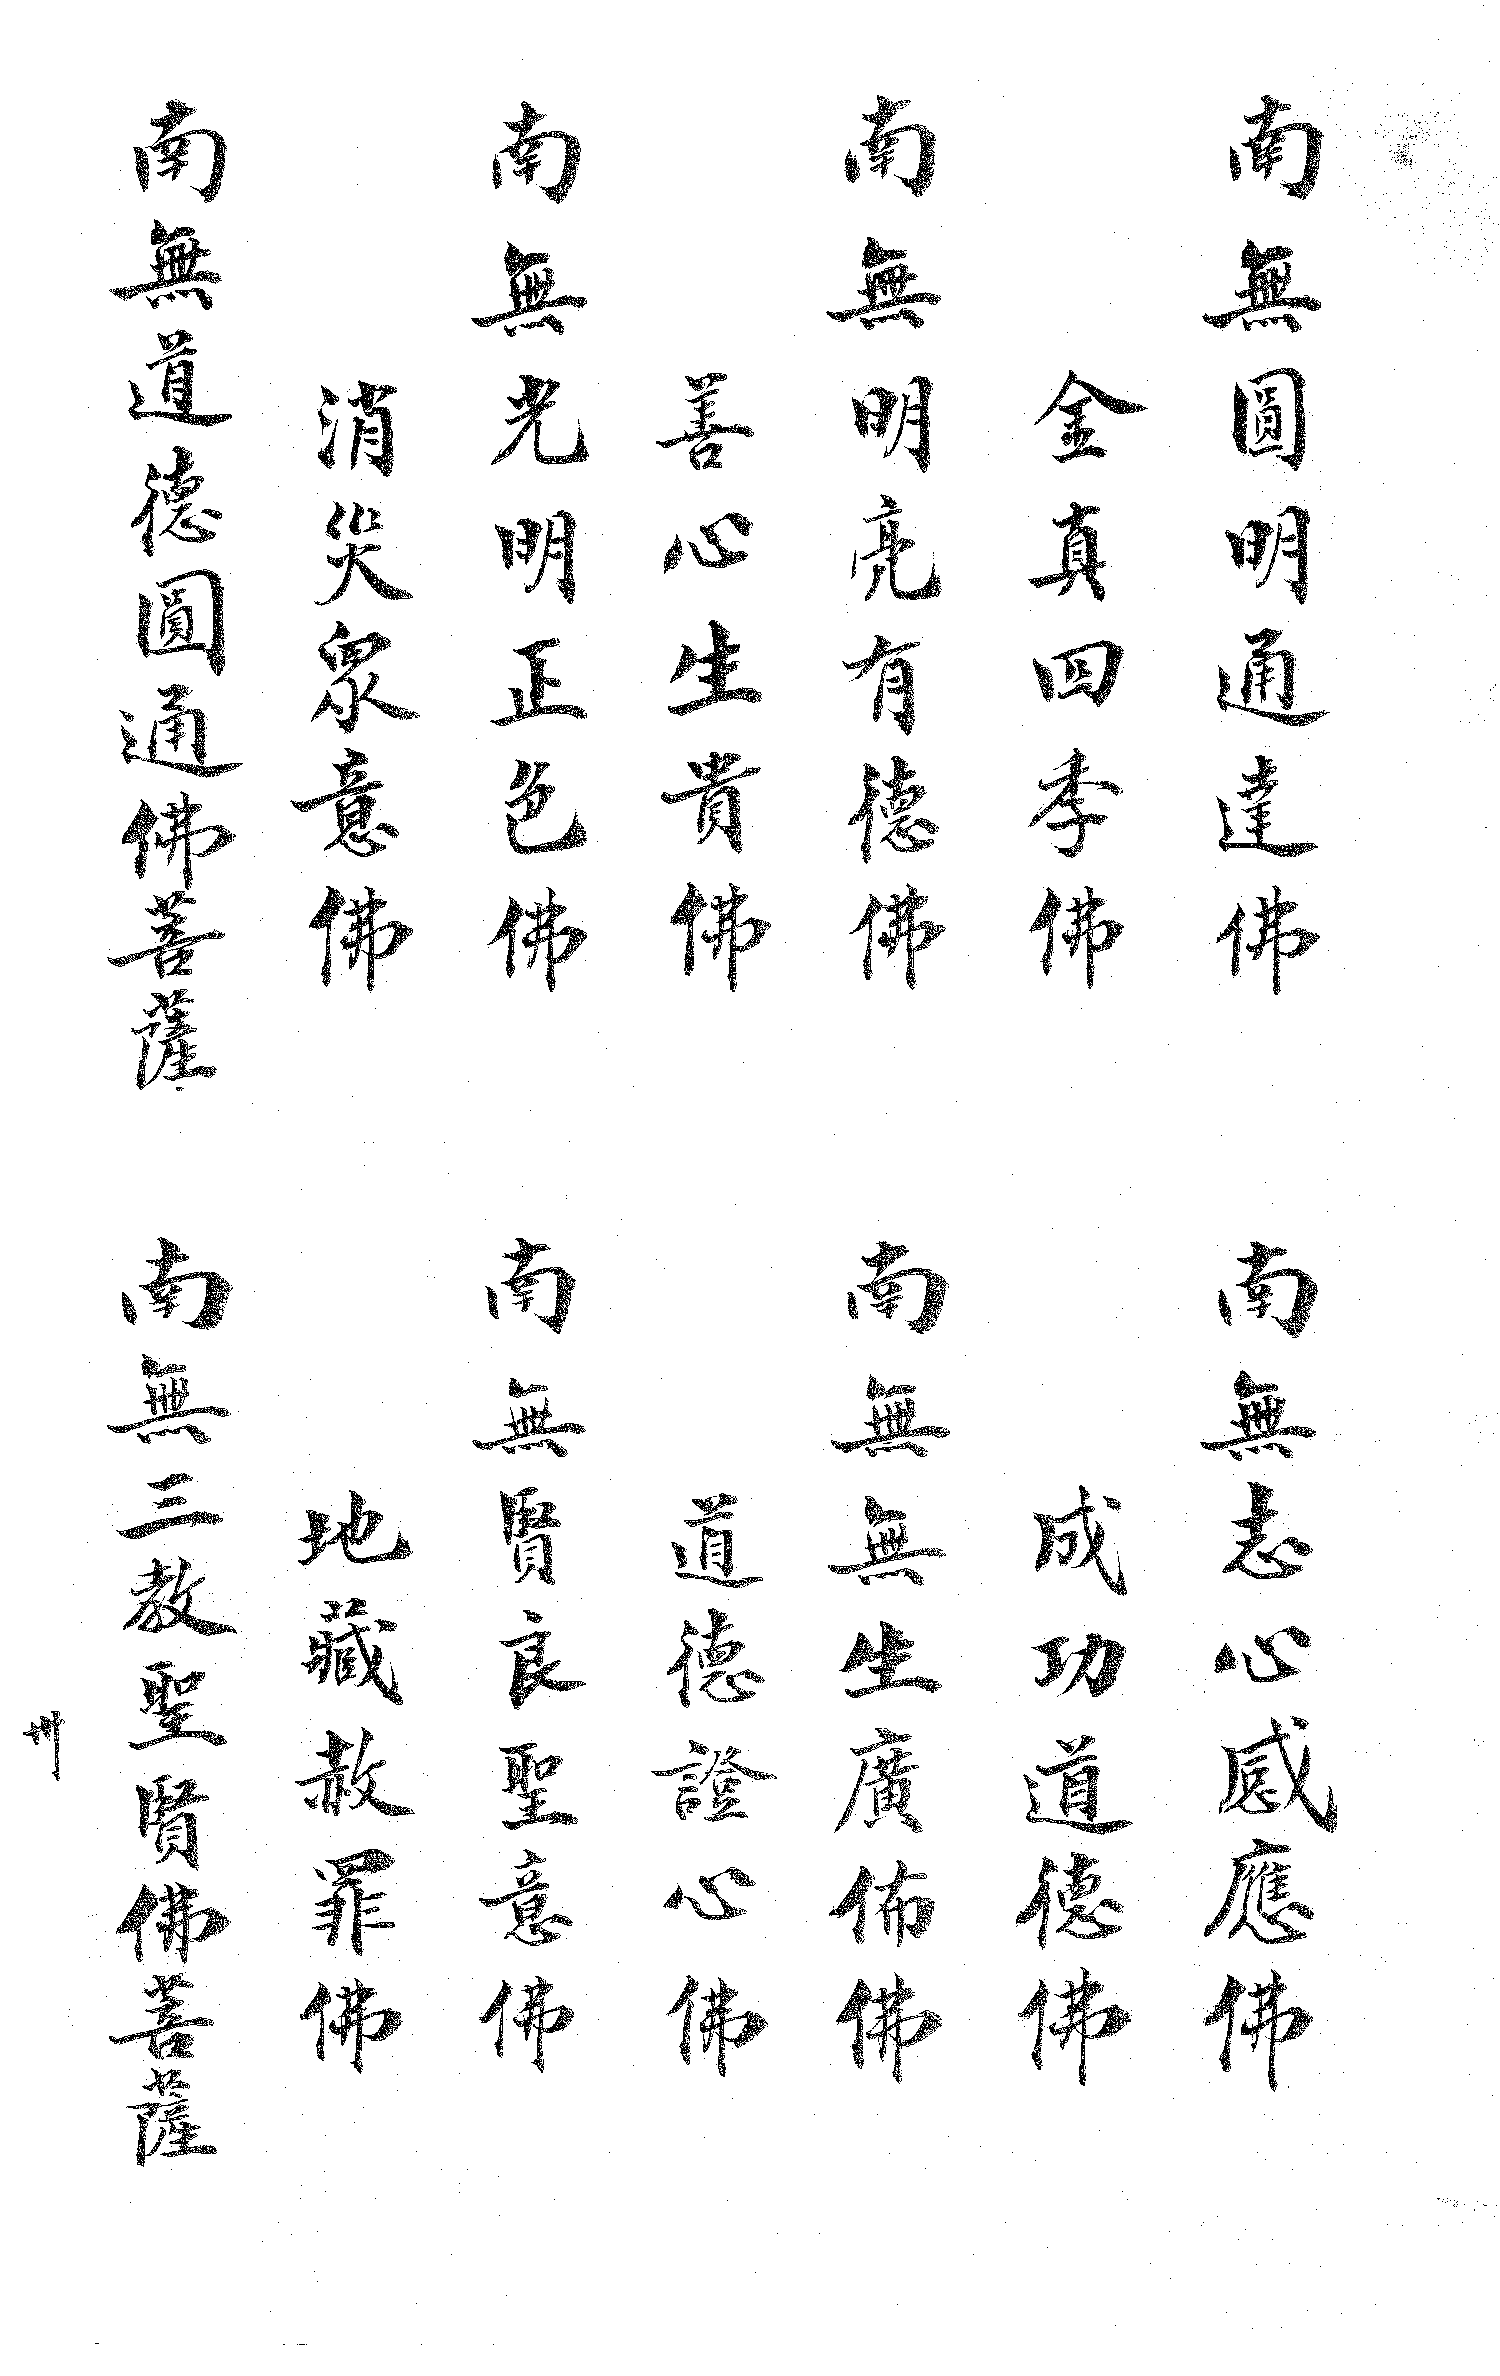 南無圓明通達佛
金真四季佛
南無明亮有德佛
善心生貴佛
南無光明正色佛
消災眾意佛
南無道德圓通佛菩薩
南無志心感應佛
成功道德佛
南無無生廣佈佛
道德證心佛
南無賢良聖意佛
地藏赦罪佛
南無三教聖賢佛菩薩
卅